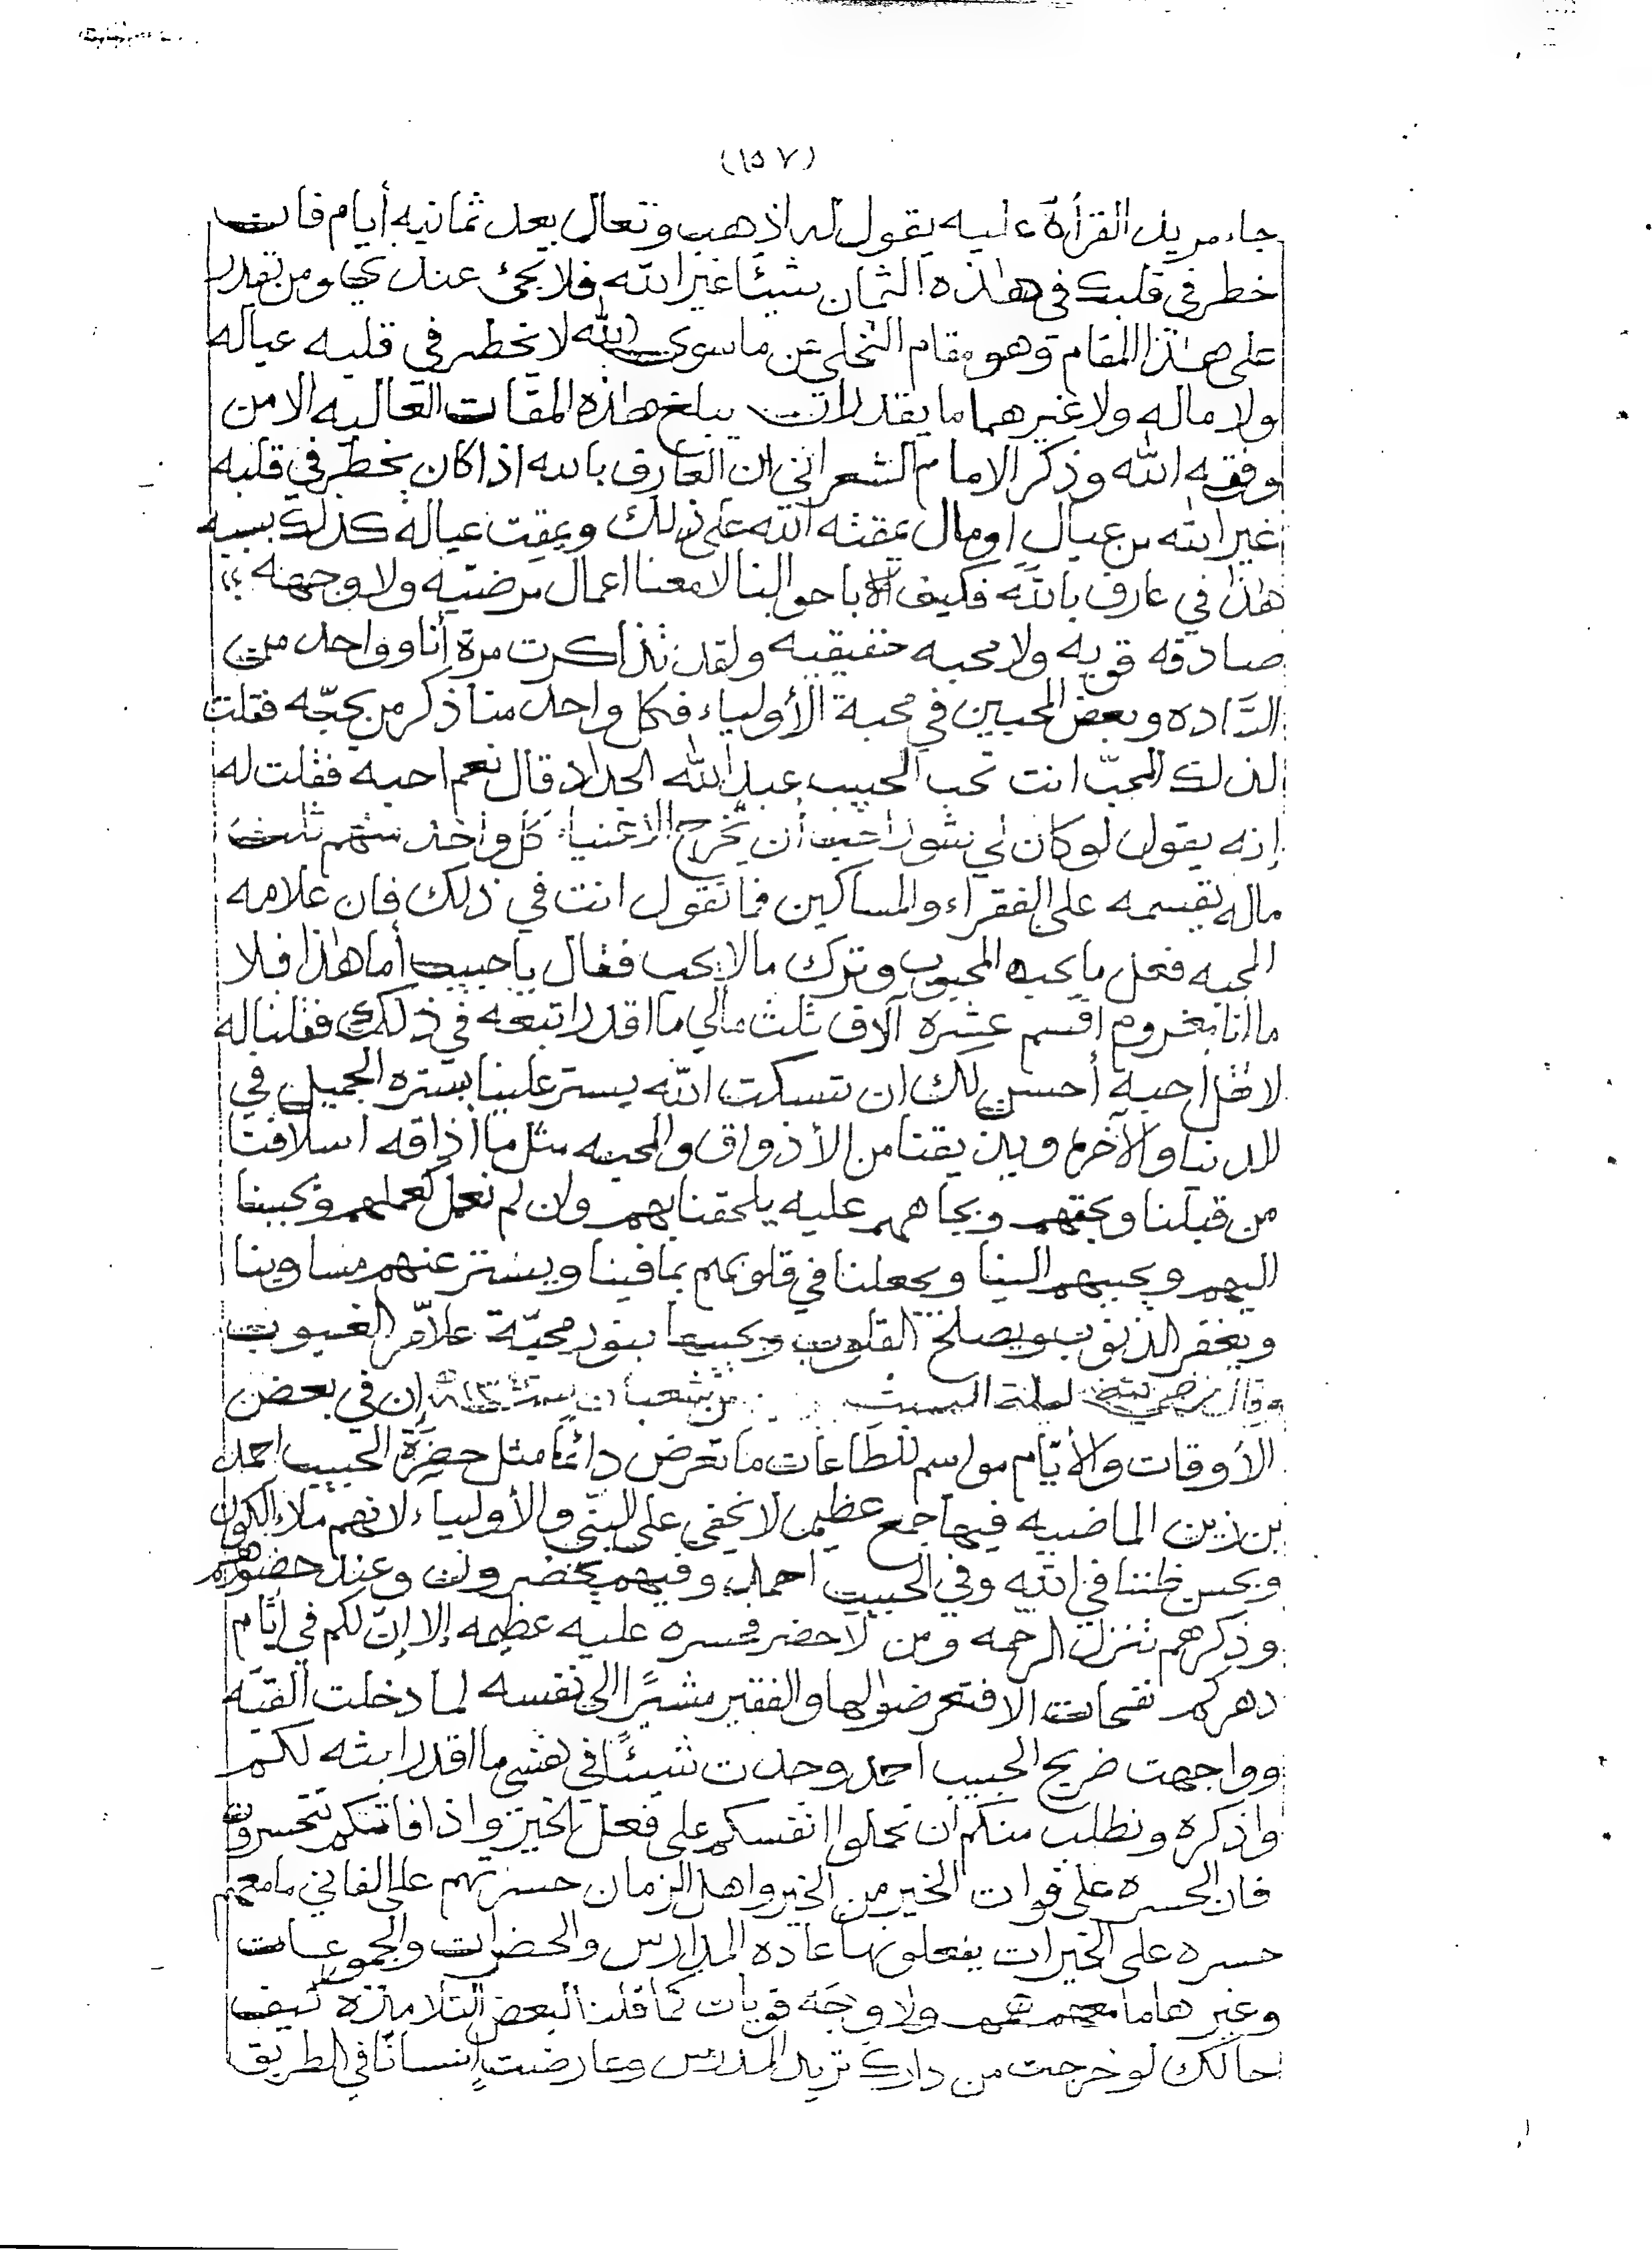 (١٥٧)
جاء مريد القرأة عليه يقول له اذهب وتعال بعد ثمانيه أيام فان
خطر في قلبك في هذه الثمان شيئا غير الله فلا تجئ عندي ومن يقدر
على هذا المقام وهو مقام التخلي عن ما سوى الله لا يخطر في قلبه عياله
ولا ماله ولا غيرهما ما يقدر ان يبلغ هذه المقات العاليه الا من
وفقه الله وذكر الامام الشعراني ان العارف بالله اذا كان يخطر في قلبه
غير الله من عيال او مال يمقته الله على ذلك ويمقت عياله كذلك بسببه
هذا في عارف بالله فكيف الا باحوالنا لا معنا اعمال مرضيه ولا وجهه
صادقه قويه ولا محبه حقيقيه ولقد تذاكرت مرة أنا وواحد من
السَّاده وبعض المحبين في محبة الأولياء فكل واحد منا ذكر من يحبّه فقلت
لذلك المحبّ انت تحب الحبيب عبد الله الحداد قال نعم احبه فقلت له
إنه يقول لو كان لي شور احببت أن يخرج الاغنياء كل واحد منهم ثلث
ماله يقسمه على الفقراء والمساكين فما تقول انت في ذلك فان علامه
المحبه فعل ما يحبه المحبوب وترك مالا يحب فقال يا حبيب أما هذا فلا
ما انا بمغروم اقسم عشره آلاف ثلث مالي ما اقدر اتبعه في ذلك فقلنا له
لا تقل احبه أحسن لك ان تسكت الله يستر علينا بستره الجميل في
الدنيا والآخره ويذيقنا من الأذواق والمحبه مثل ما أذاقه اسلافنا
من قبلنا وبحقهم وبجاههم عليه يلحقنا بهم وان لم نعمل كعملهم ويحببنا
اليهم ويحببهم الينا ويجعلنا في قلوبهم بما فينا ويستر عنهم مساوينا
ويغفر الذنوب ويصلح القلوب ويحييها بنور محبّة علاّم الغيوب
وقال رضي الله عنه ليلة السبت من شعبان سنة إن في بعض
الأوقات والأيّام مواسم للطاعات ما تعرض دائمًا مثل حضرة الحبيب احمد
بن زين الماضيه فيها جمع عظيم لا يخفى على النبّي والأولياء لانهم ملاء الكون
وبحسن ظننا في الله وفي الحبيب احمد وفيهم يحضرون وعند حضورهم
وذكرهم تنزل الرحمه ومن لا حضر فحسره عليه عظيمه إلا إنّ لكم في ايّام
دهركم نفحات الا فتعرضوا لها والفقير مشيرًا الى نفسه لما دخلت القبّه
وواجهت ضريح الحبيب احمد وجدت شيئًا في نفسي ما اقدر ابثه لكم
واذكره ونطلب منكم ان تحملوا انفسكم على فعل الخير واذا فاتتكم تتحسرون
فان الحسره على فوات الخير من الخير واهل الزمان حسرتهم على الفاني ما معهم
حسره على الخيرات يفعلونها عاده المدارس والحضرات والجموعات
وغيرها ما معهم ولا وجهة قويات كما قلنا لبعض التلامذه كيف
حالك لو خرجت من دارك تريد المدرس وعارضت إنسانًا في الطريق